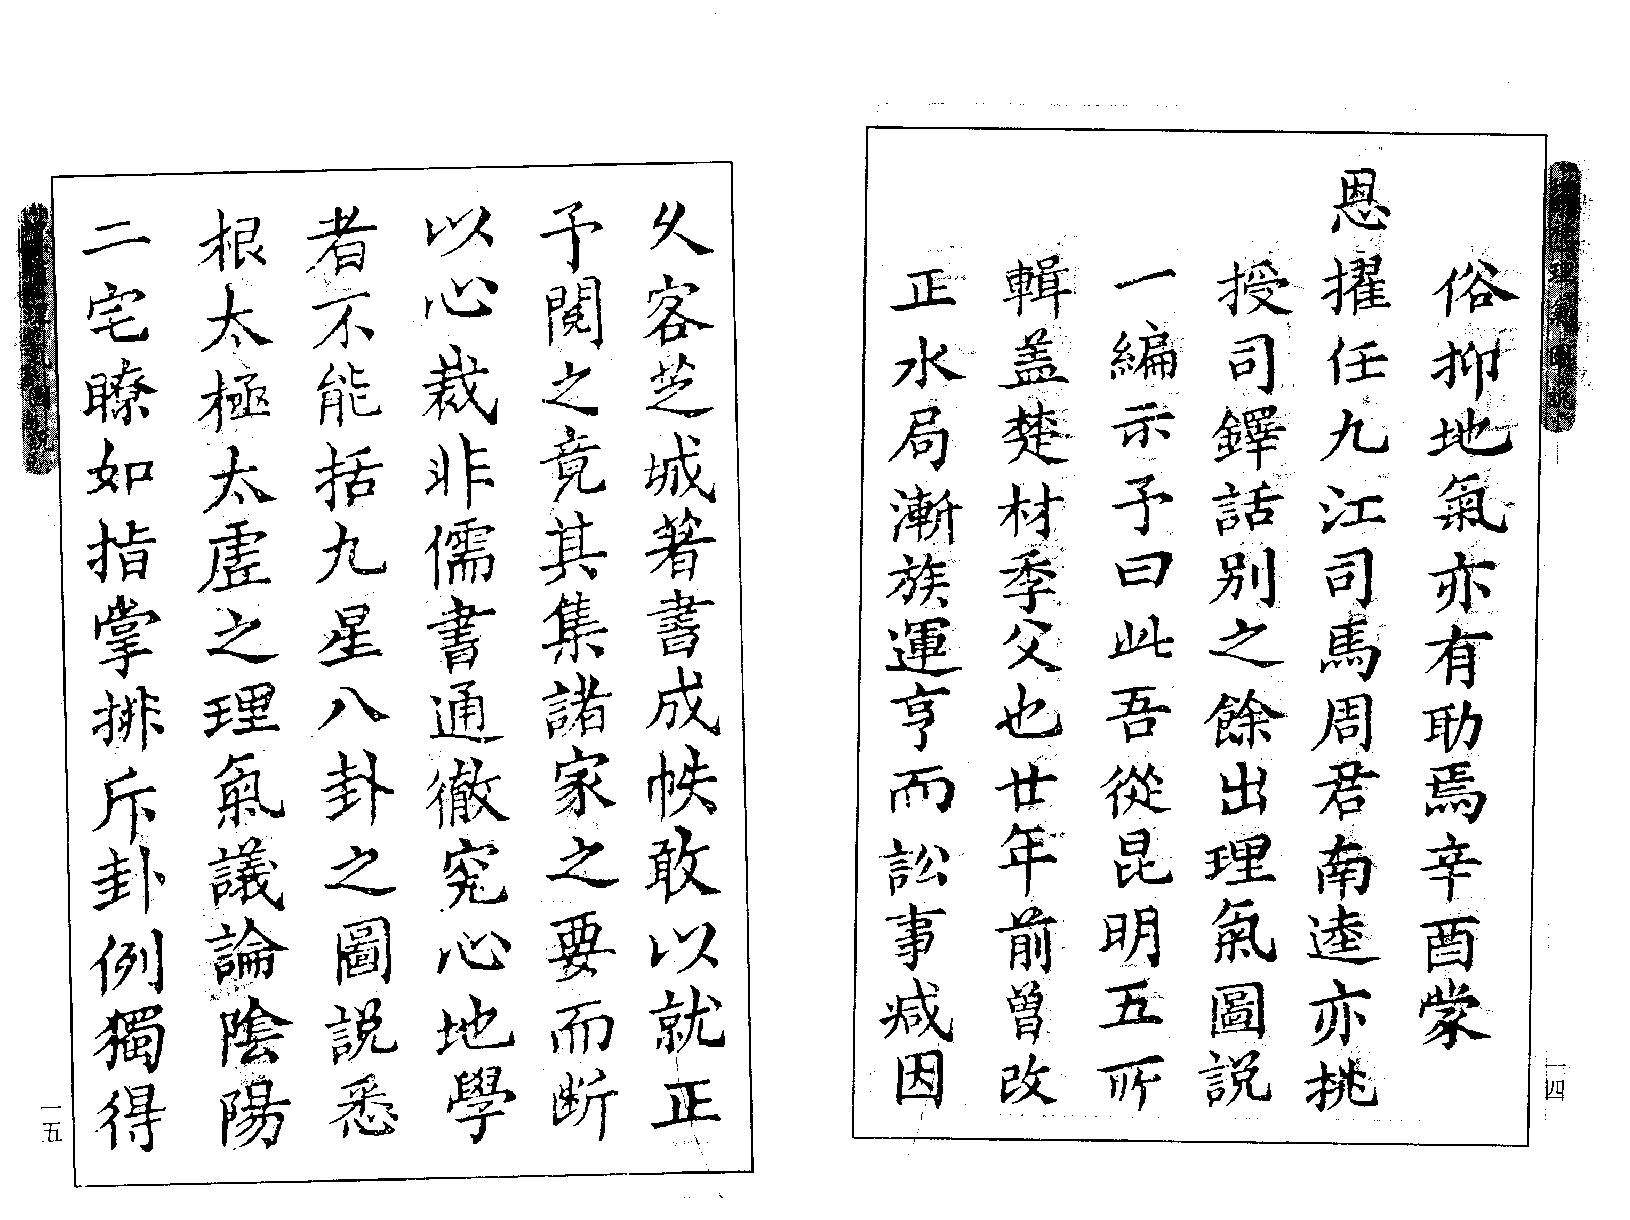 俗抑地氣亦有助焉辛酉蒙
恩擢任九江司馬周君南逵亦挑
授司鐸話別之餘出理氣圖說
一編示予曰此吾從昆明五所
輯蓋楚材季父也廿年前曾改
正水局漸族運亨而訟事減因
一四
久客芝城著書成帙敢以就正
予閱之竟其集諸家之要而断
以心裁非儒書通徹究心地學
者不能括九星八卦之圖説悉
根太極太虛之理氣議論陰陽
二宅瞭如指掌排斥卦例獨得
一五